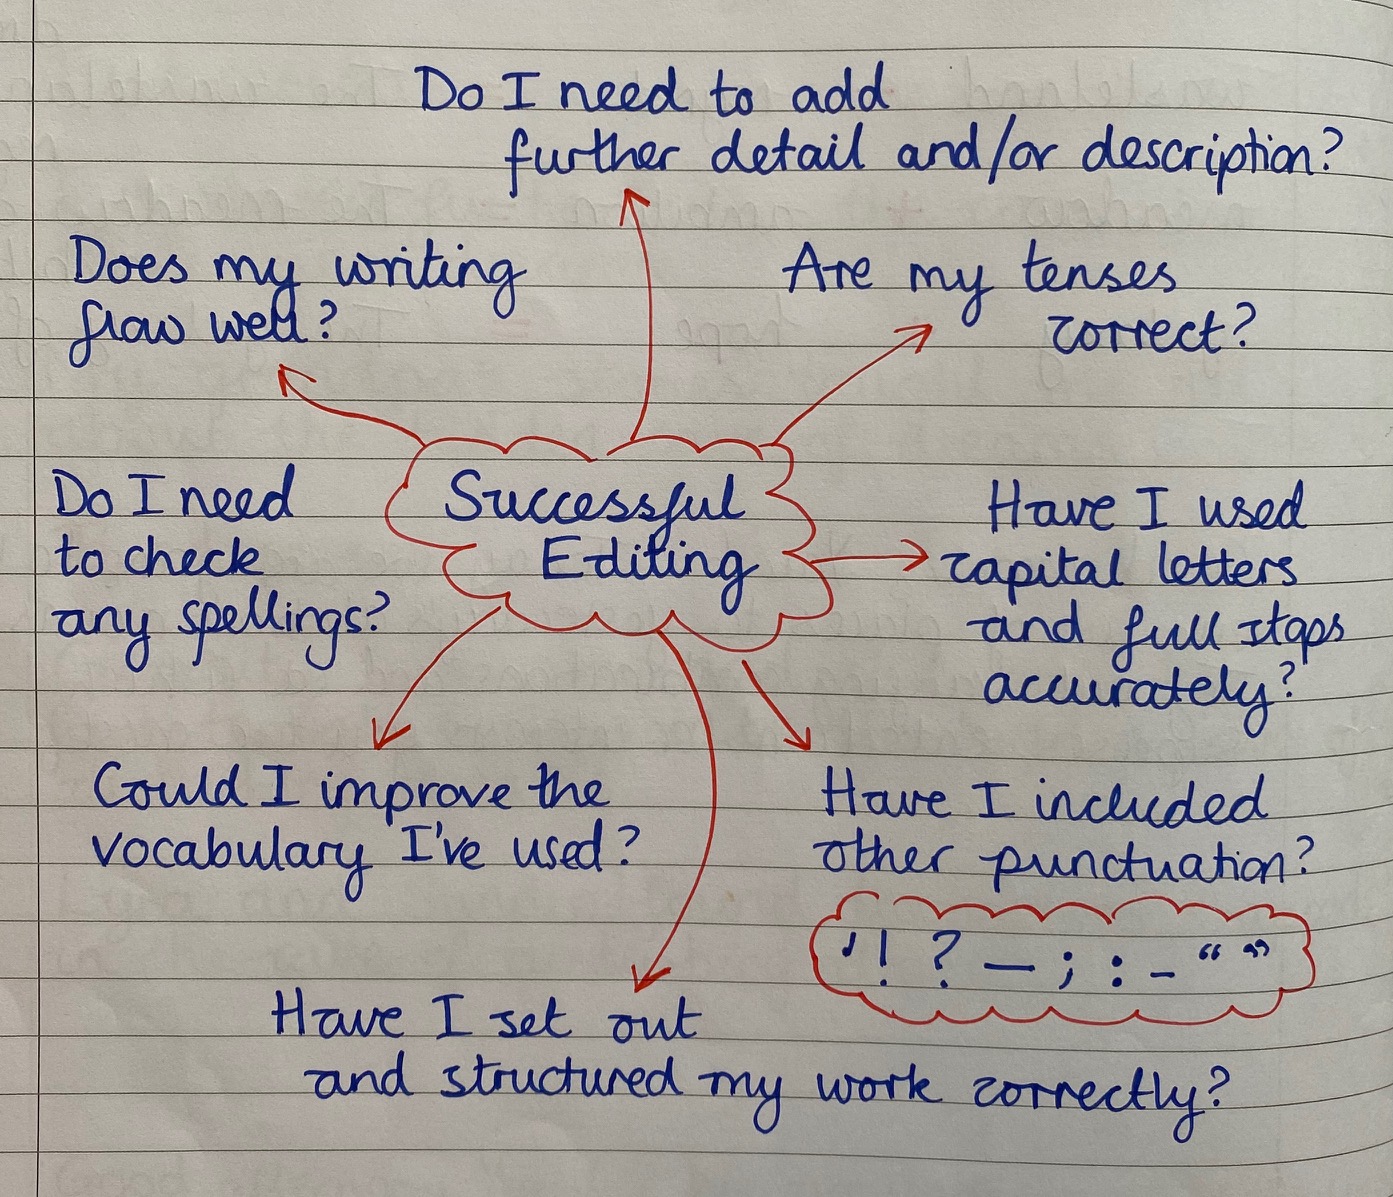 Do I need to add
further detail and/or description?
Does my writing
flow well?
Are my tenses
correct?
Successful
Editing
Do I need
to check
any spellings?
Have I used
capital letters
and full stops
accurately?
Could I improve the
vocabulary I've used?
Have I included
other punctuation?
' ! ? — ; : - “ ”
Have I set out
and structured my work correctly?